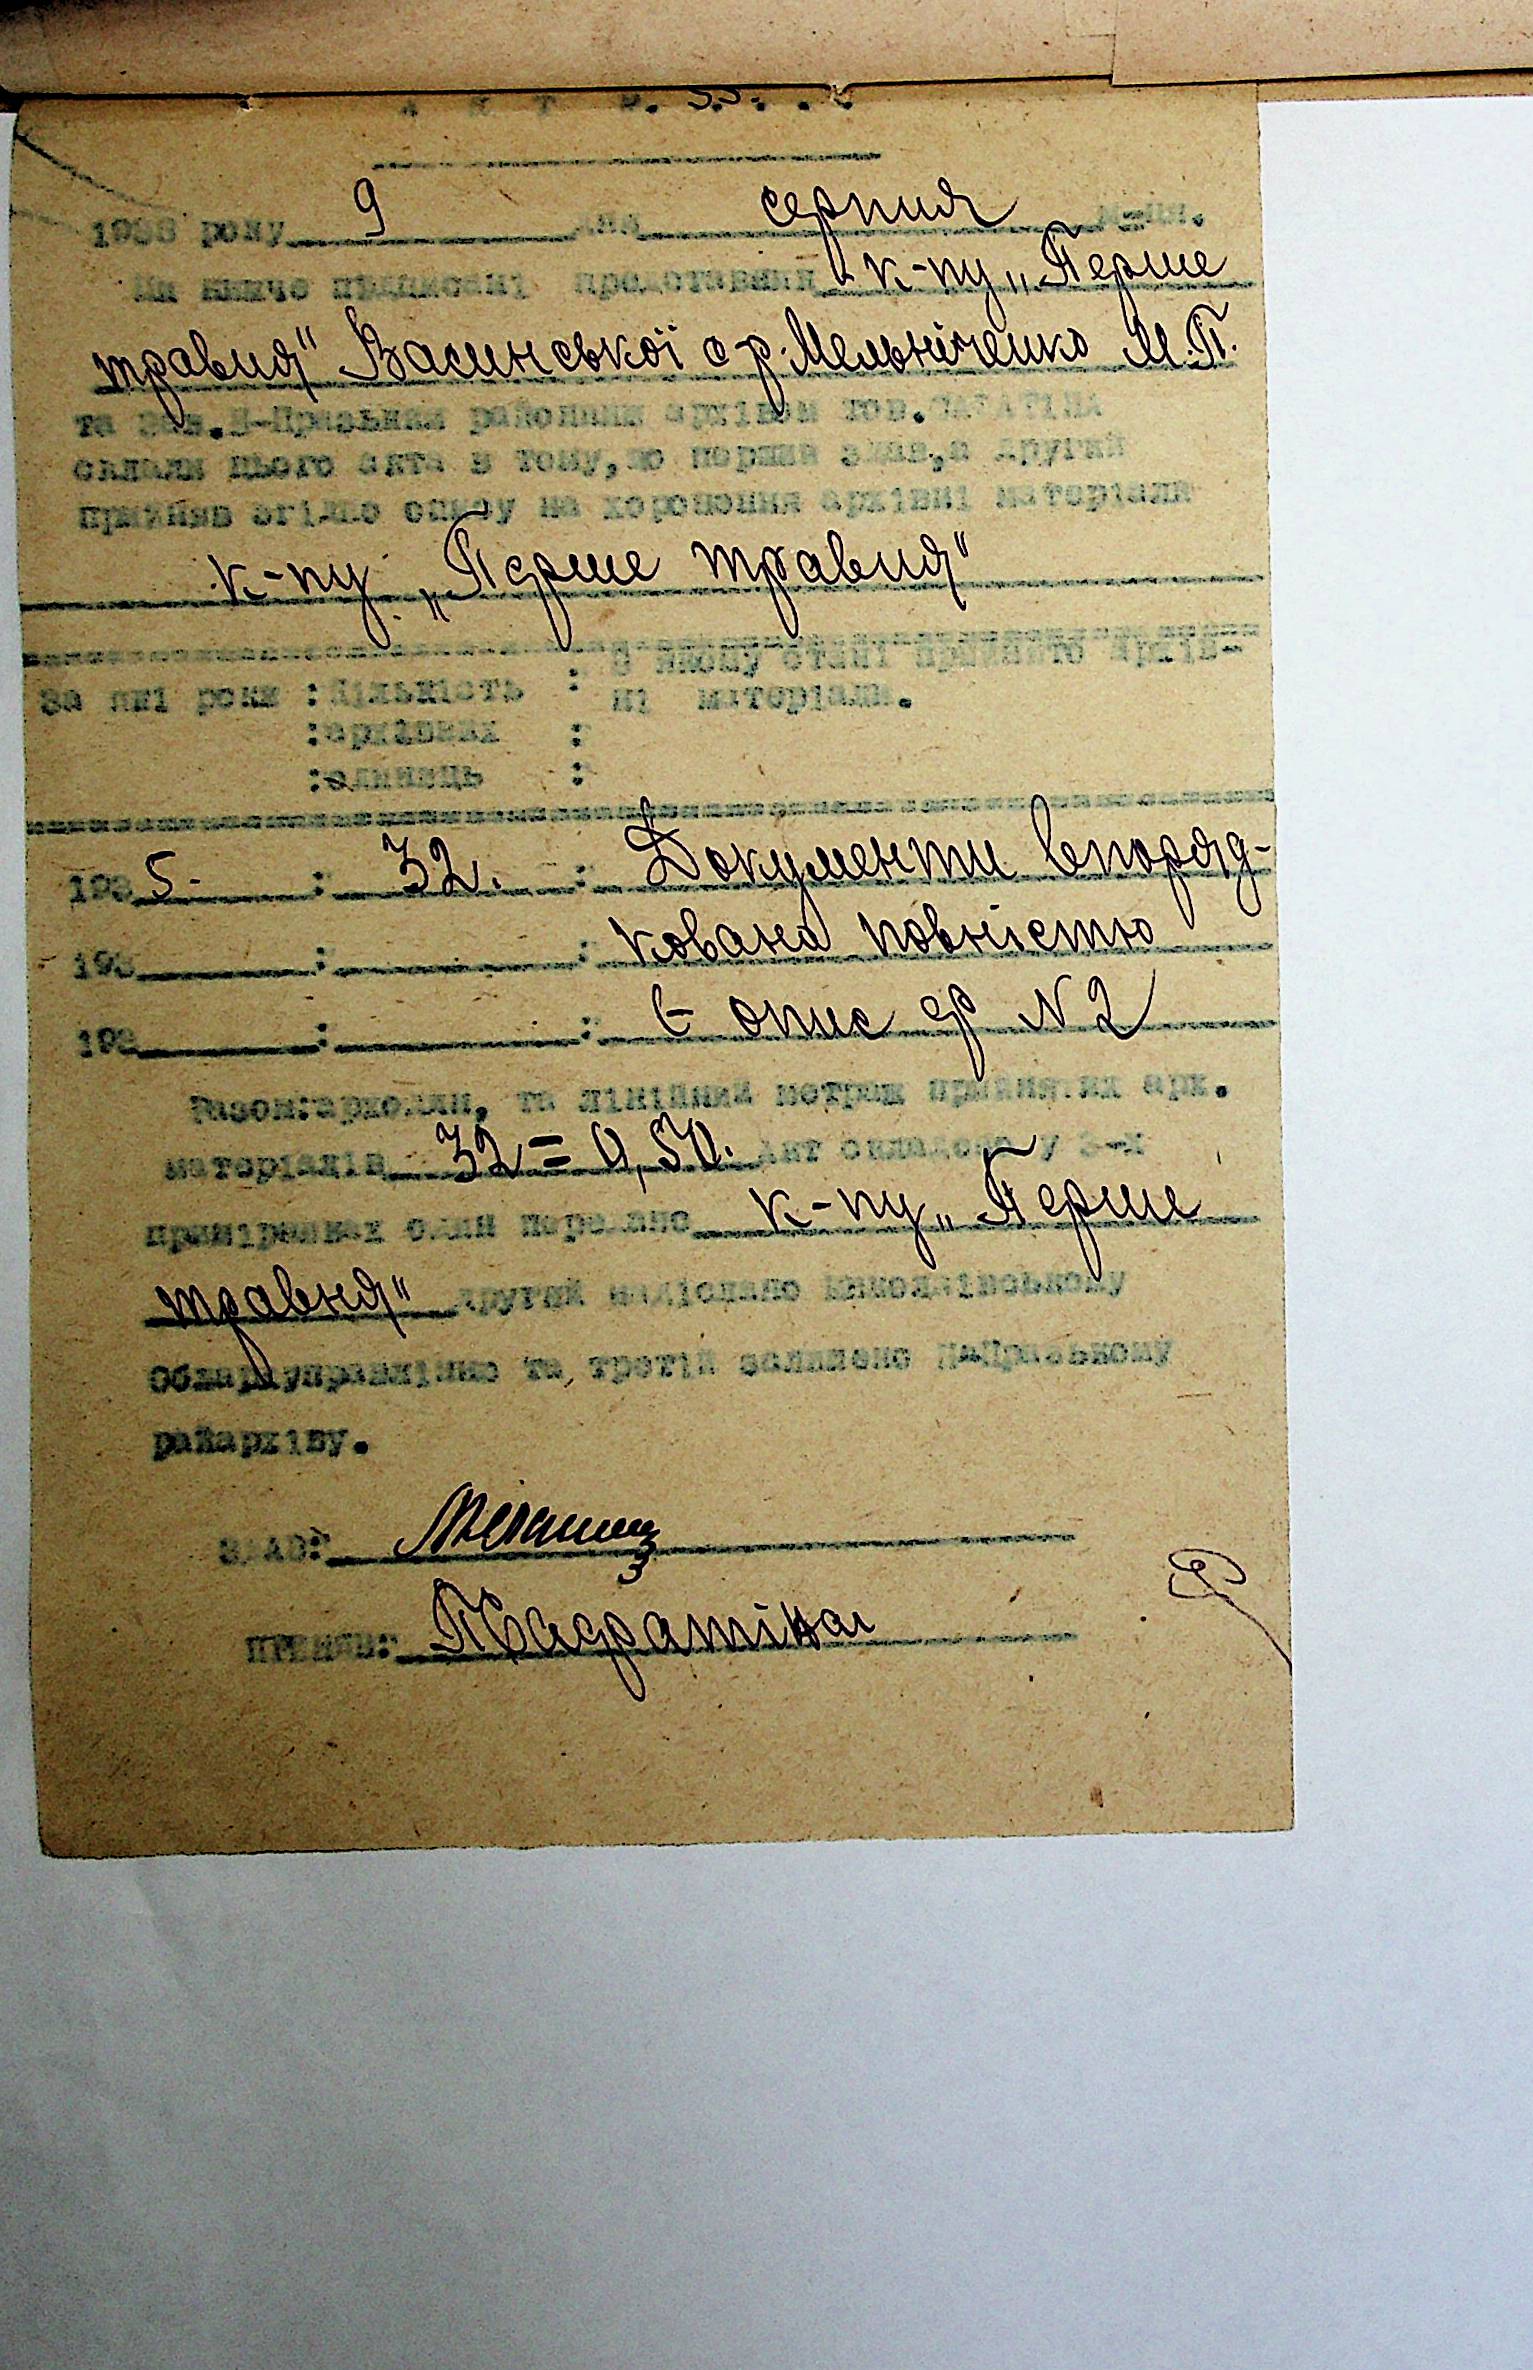 А К Т
1938 року 9 дня серпня м-ця.
Ми нижче підписані представник к-пу „Перше
травня" Васинської с-р. Мельніченко М.П.
та Зав. Н-Празьким районним архівом тов.
склали цього акта в тому, що перший здав, а другий
прийняв згідно опису на хоронення архівні матеріали
к-пу „Перше травня"
В якому стані прийнято архів-
За які роки : Кількість : ні матеріали.
: архівних :
: одиниць :
193 5- : 32. : Документи впоряд-
193 : : кована повністю
193 : : Є опис ф N 2
Разом: арходин, та лінійний метраж прийнятих арх.
матеріалів 32 = 0,50. Акт складено у 3-х
примірниках один передано к-пу „Перше
травня" другий надіслано Миколаївському
Облархуправлінню та, третій залишено Н-Празькому
райархіву.
ЗДАВ:
ПРИЙНЯВ: